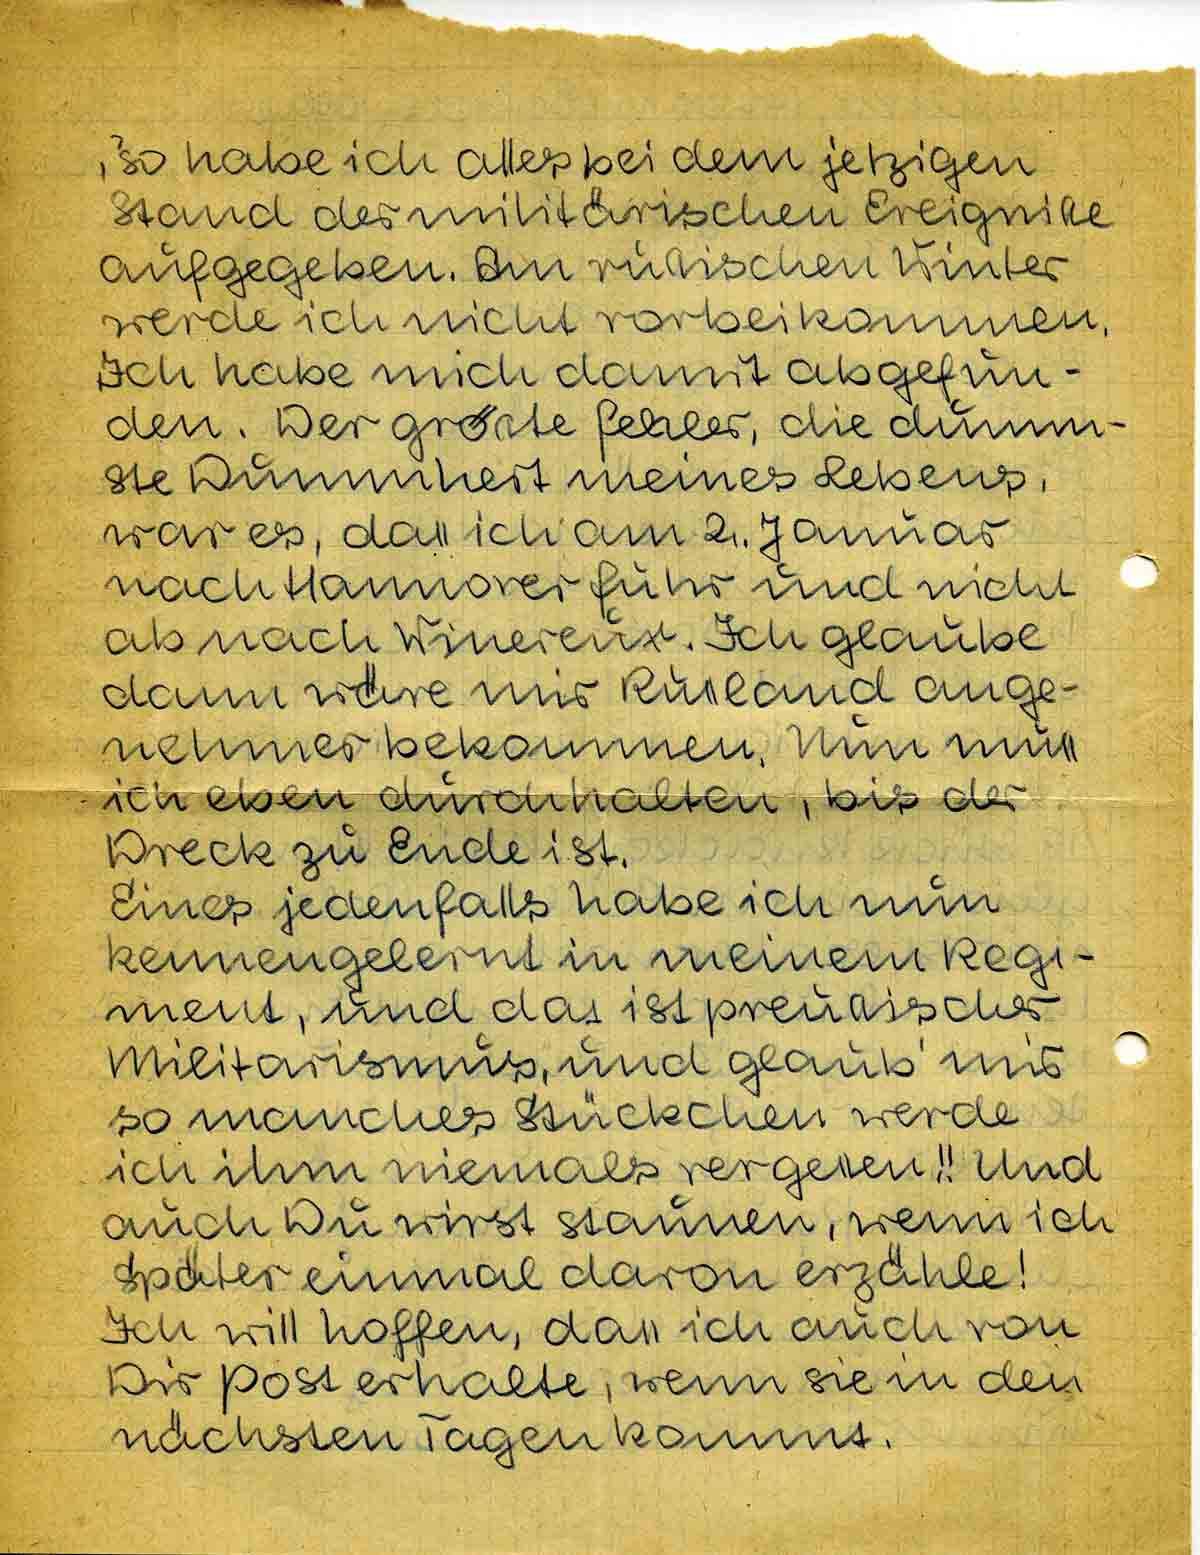 , so habe ich alles bei dem jetzigen
Stand der militärischen Ereignisse
aufgegeben. Am russischen Winter
werde ich nicht vorbeikommen.
Ich habe mich damit abgefun-
den. Der grösste Fehler, die dümm-
ste Dummheit meines Lebens,
war es, dass ich am 2. Januar
nach Hannover fuhr und nicht
ab nach Wimereux. Ich glaube
dann wäre mir Russland ange-
nehmer bekommen. Nun muss
ich eben durchhalten, bis der
Dreck zu Ende ist.
Eines jedenfalls habe ich nun
kennengelernt in meinem Regi-
ment, und das ist preussischer
Militarismus, und glaub' mir
so manches Stückchen werde
ich ihm niemals vergessen!! Und
auch Du wirst staunen, wenn ich
später einmal davon erzähle!
Ich will hoffen, dass ich auch von
Dir Post erhalte, wenn sie in den
nächsten Tagen kommt.